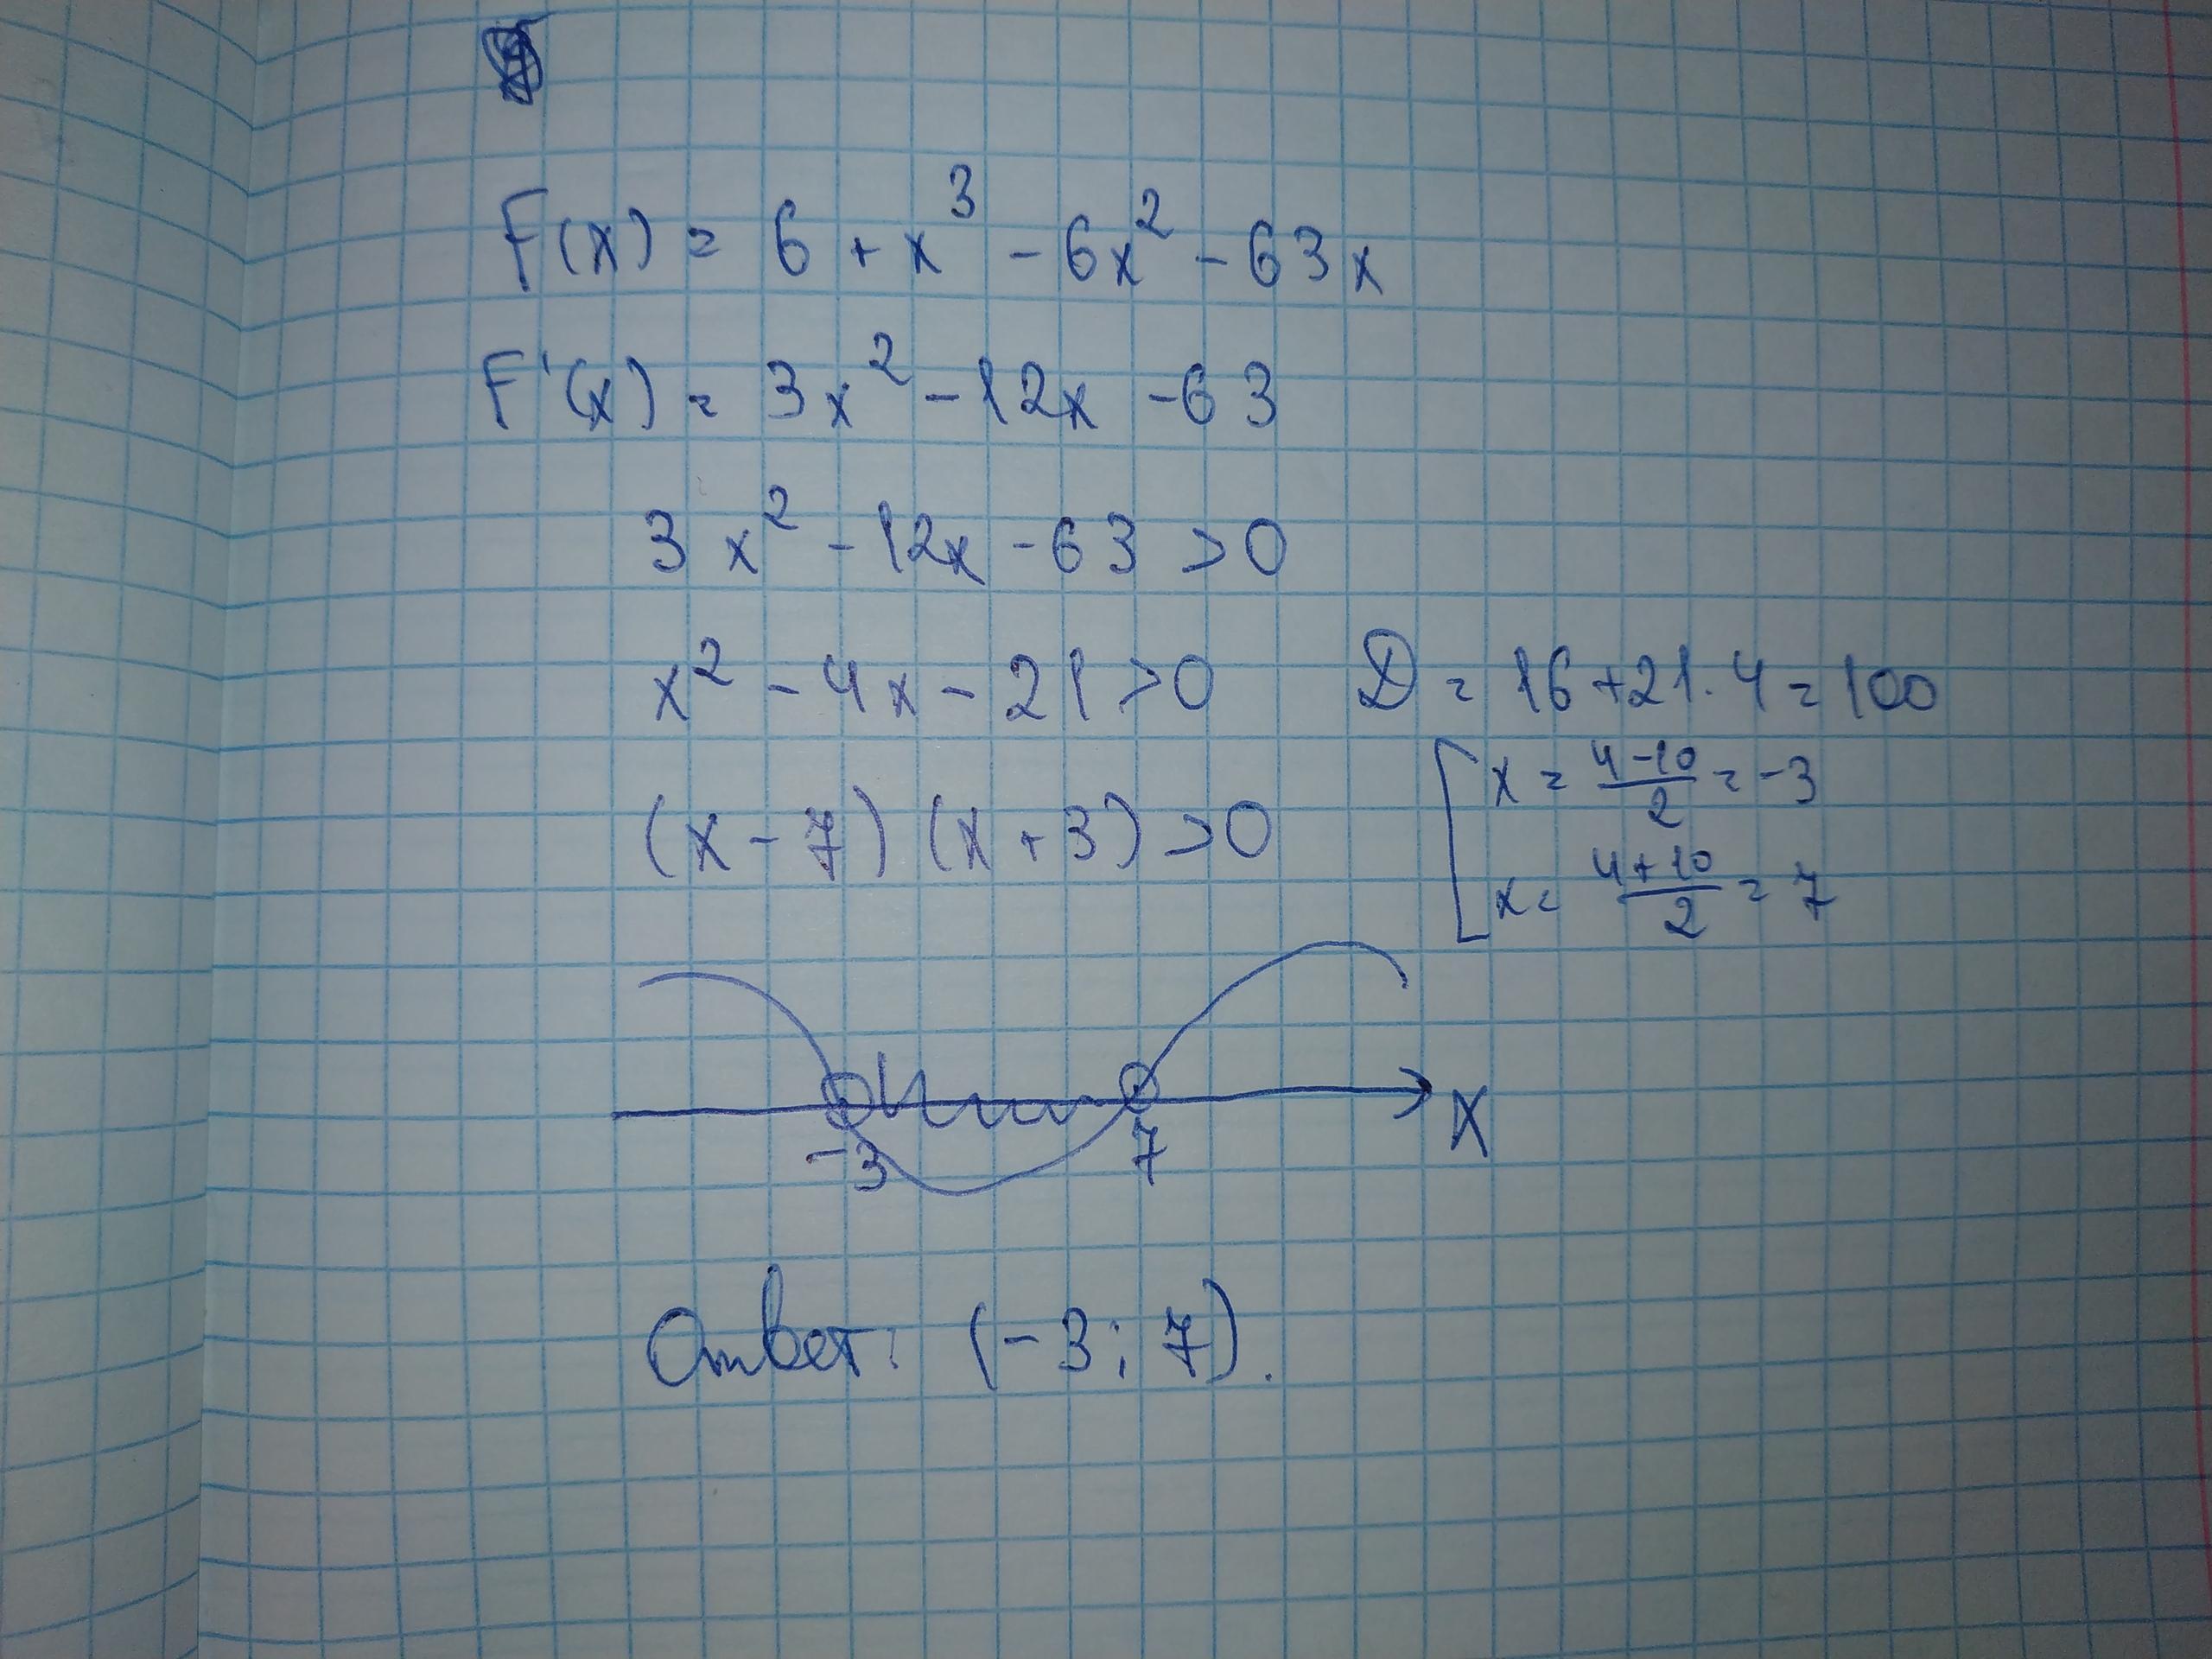 F(x) = 6 + x³ - 6x² - 63x
F'(x) = 3x² - 12x - 63
3x² - 12x - 63 > 0
x² - 4x - 21 > 0 D = 16 + 21·4 = 100
x = (4-10)/2 = -3
(x - 7) (x + 3) > 0
x = (4+10)/2 = 7
-3 7 X
Ответ: (-3; 7).